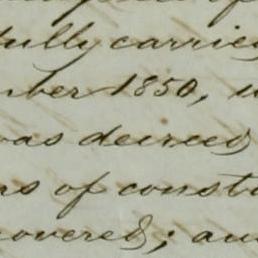 fully carried
mber 1850,
was decreed
rs of const
overed; and